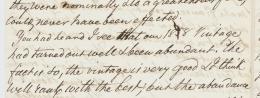 they were nominally also a greater
could never have been effected.
You had heard I see that our 1878 Vintage
had turned out well & been abundant. The
fact is so, the vintage is very good & I think
will rank with the best, but the abundance